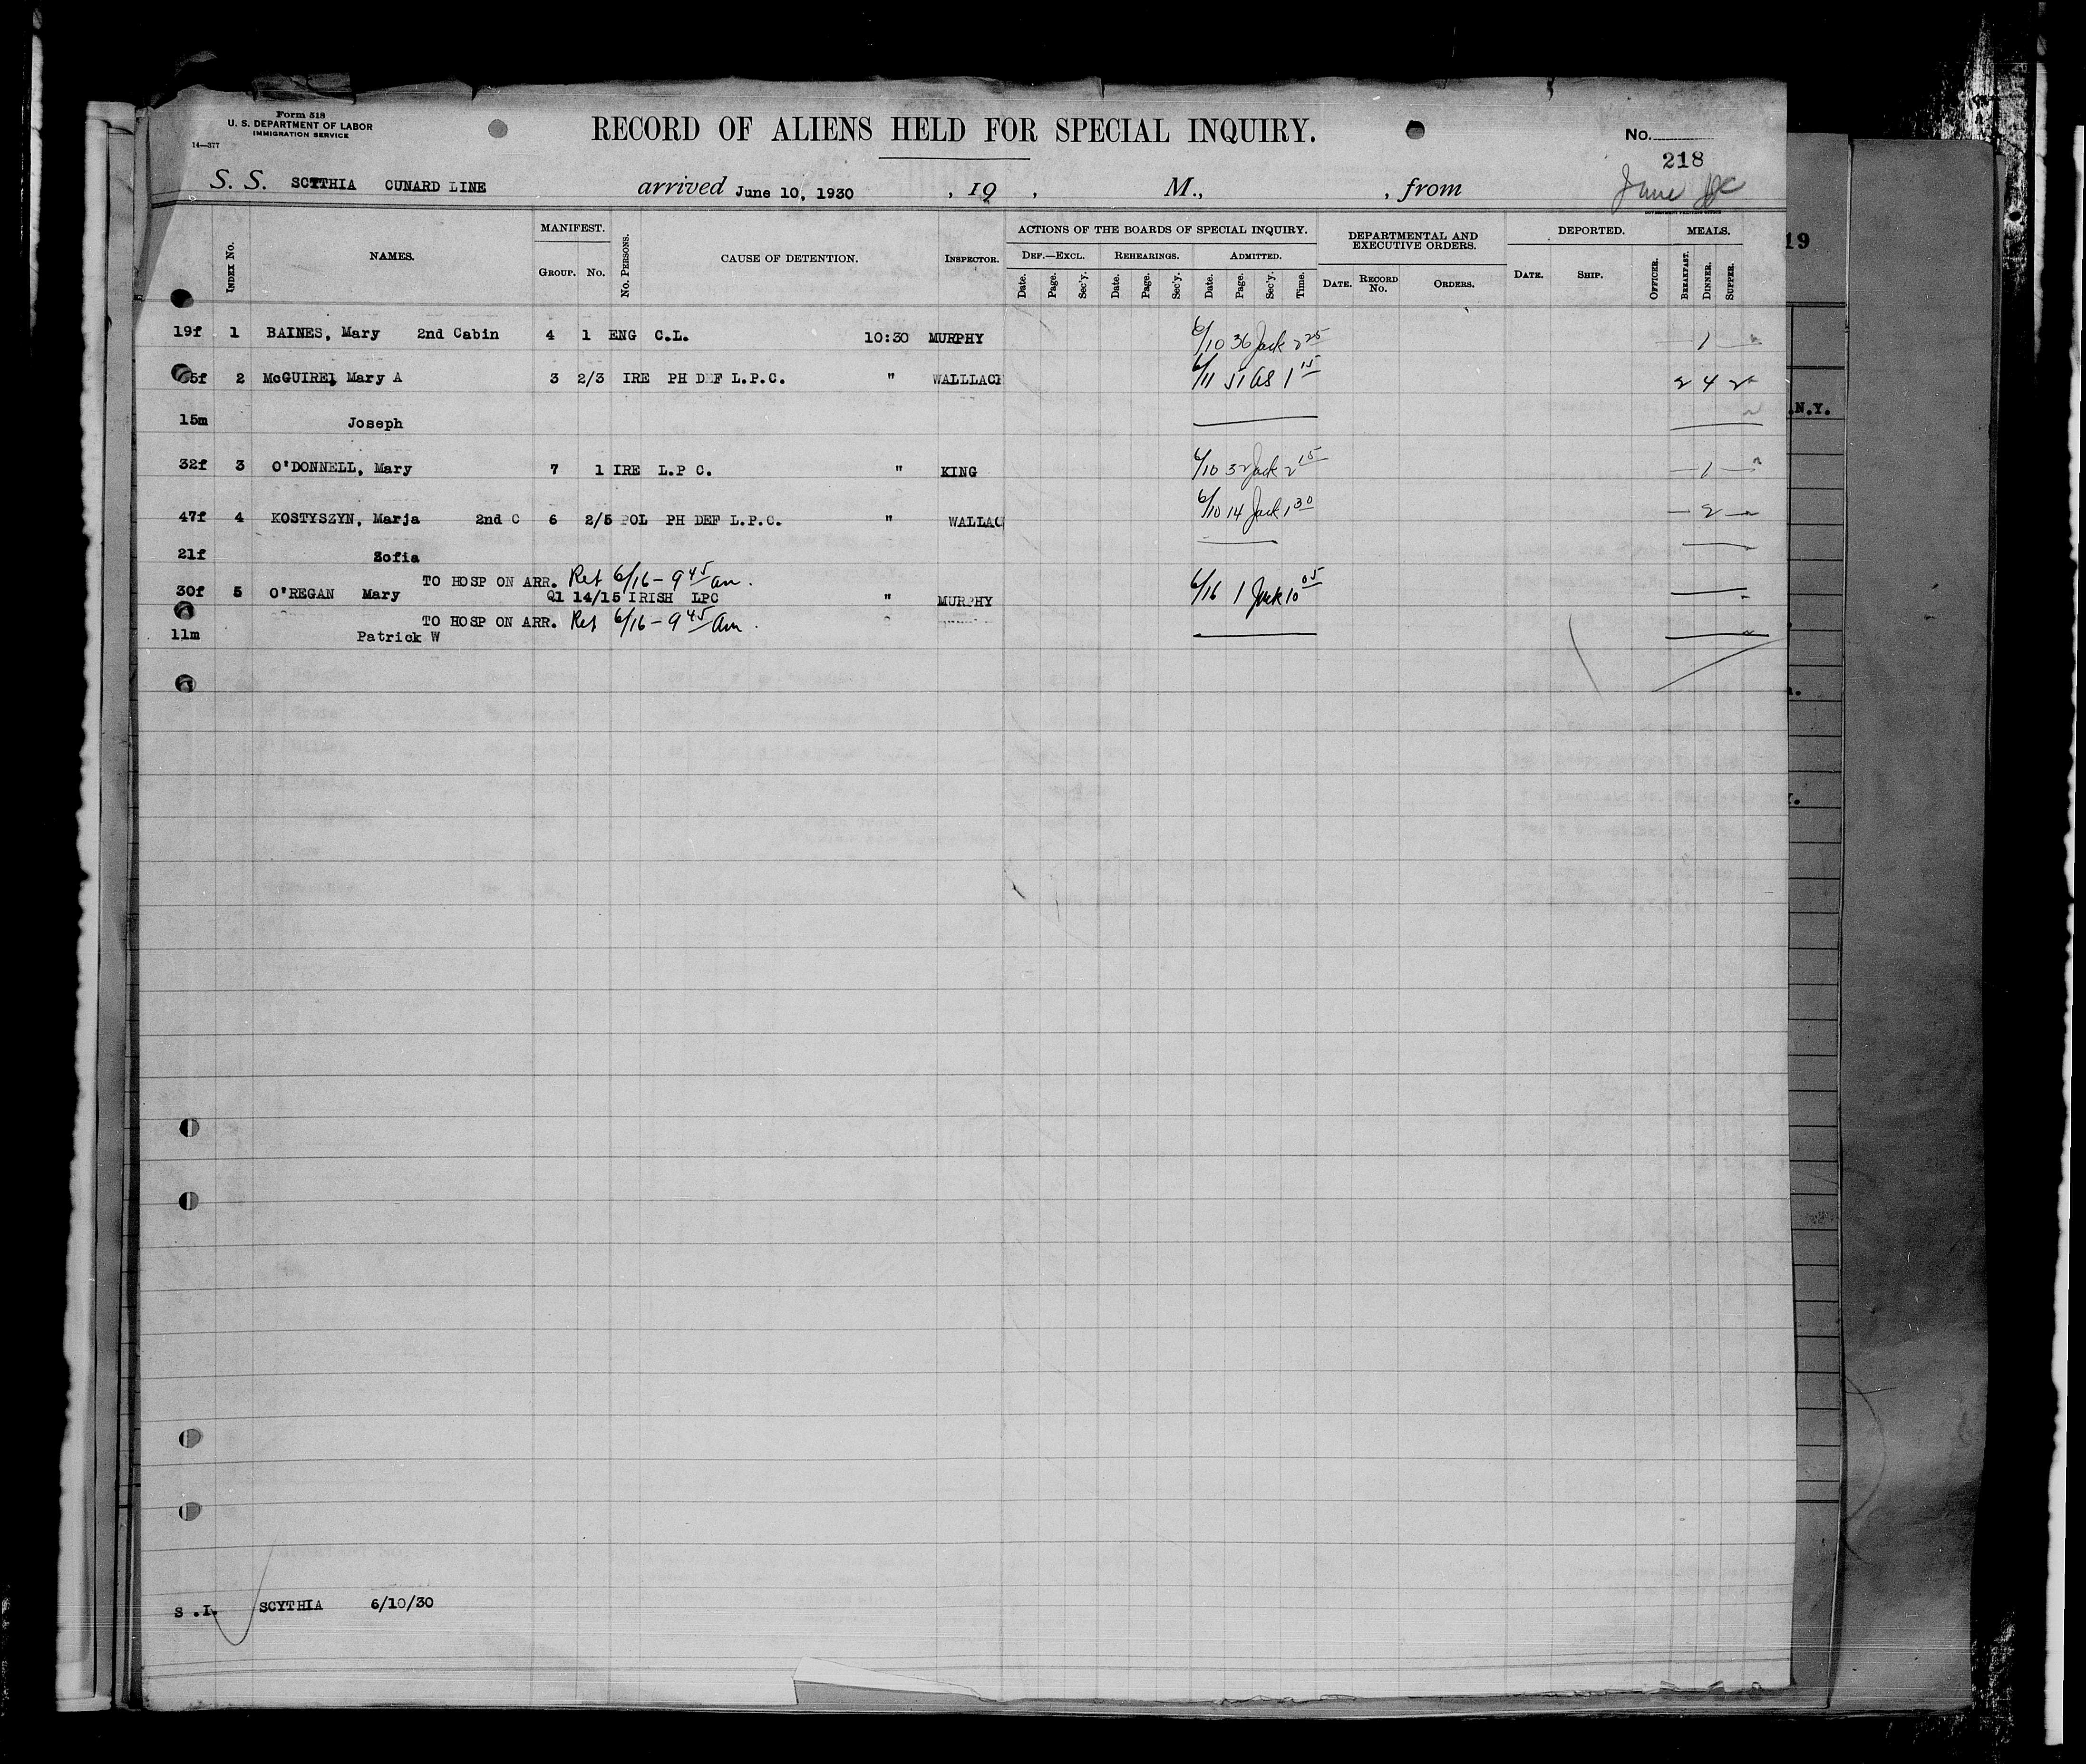 Form 518
U. S. DEPARTMENT OF LABOR
IMMIGRATION SERVICE
14—377
RECORD OF ALIENS HELD FOR SPECIAL INQUIRY.
No.
218
S. S. SCYTHIA CUNARD LINE arrived June 10, 1930 , 19 , M., , from
June
GOVERNMENT PRINTING OFFICE
INDEX No. NAMES. MANIFEST. GROUP. No. No. PERSONS. CAUSE OF DETENTION. INSPECTOR.
ACTIONS OF THE BOARDS OF SPECIAL INQUIRY. DEPARTMENTAL AND EXECUTIVE ORDERS. DEPORTED. MEALS.
DEF.—EXCL. REHEARINGS. ADMITTED.
Date. Page. Sec'y. Date. Page. Sec'y. Date. Page. Sec'y. Time. DATE. RECORD No. ORDERS. DATE. SHIP. OFFICER. BREAKFAST. DINNER. SUPPER.
19f 1 BAINES, Mary 2nd Cabin 4 1 ENG C.L. 10:30 MURPHY 6/10 36 Jack 2 25 — 1 —
5f 2 McGUIRE, Mary A 3 2/3 IRE PH DEF L.P.C. " WALLLACE 6/11 51 1 15 2 4 2
15m Joseph
32f 3 O'DONNELL, Mary 7 1 IRE L.P C. " KING 6/10 32 Jack 2 15 — 1 —
47f 4 KOSTYSZYN, Marja 2nd C 6 2/5 POL PH DEF L.P.C. " WALLAC 6/10 14 Jack 1 30 — 2 —
21f Zofia
TO HOSP ON ARR. Ret 6/16 - 9 45 am.
30f 5 O'REGAN Mary Q1 14/15 IRISH LPC " MURPHY 6/16 1 Jack 10 05
TO HOSP ON ARR. Ret 6/16 - 9 45 am.
11m Patrick W
S.I. SCYTHIA 6/10/30
19
N.Y.